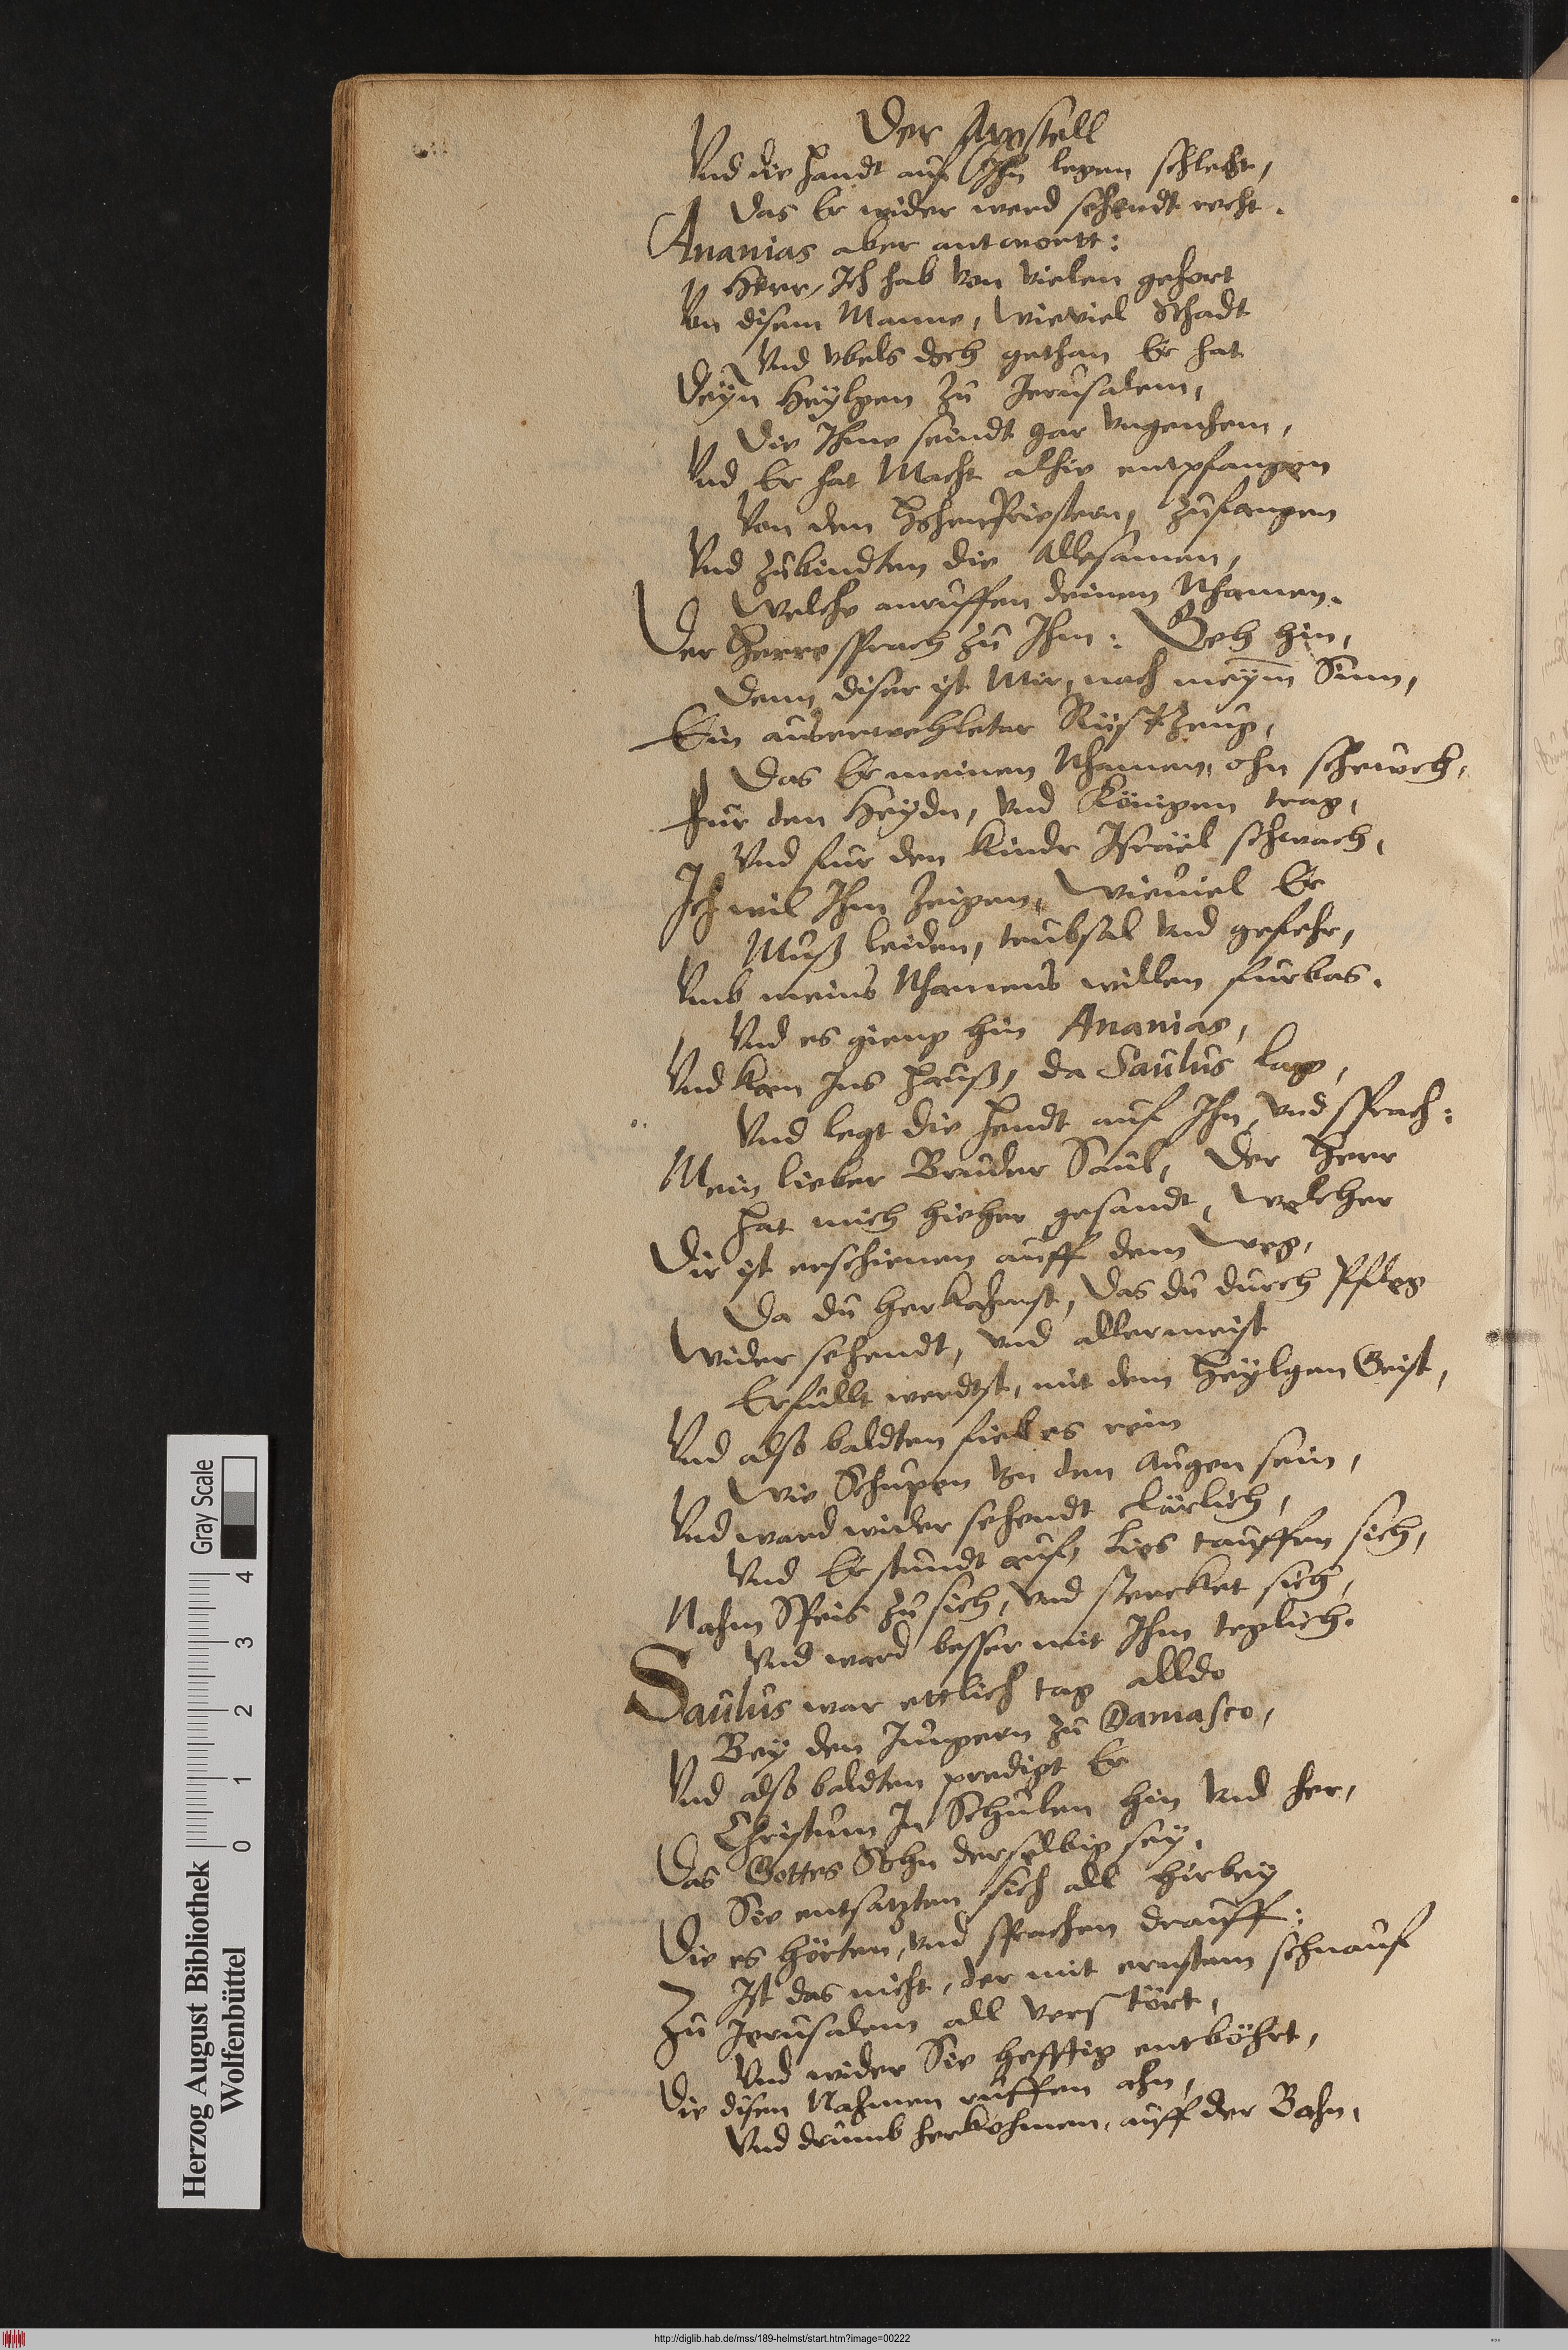 Der Apostell
Vnd die Handt auf Ihn legen schlecht,
Das Er wider werd sehendt recht.
Ananias aber antwortt:
Herr, Ich hab von vielen gehort
Von disem Manne, Wieviel Schadt
Vnd vbels doch gethan Er hat
Deyn Heylgen zu Jerusalem,
Die Ihme seindt gar vngenehm,
Vnd Er hat Macht alhie entpfangen
Von den HohenPriestern, zufangen
Vnd zubindten die Allesamen,
Welche anruffen deinen Nhamen.
Der Herre sprach zu Ihm: Geh hin,
Denn diser ist Mir, nach meym Sinn,
Ein auserwehleter Rüstzeug,
Das Er meinen Nhamen, ohn scheuch,
Fur den Heydn, vnd Königen trag,
Vnd fur den Kindr Israël schwach,
Ich wil Ihm zeigen, Wieuiel Er
Muß leiden, trubsal vnd gefehr,
Vmb meins Nhamens willen furbas.
Vnd es gieng hin Ananias,
Vnd kam Ins Hauß, da Saulus lag,
Vnd legt die Hendt auf Ihn, vnd sprach:
Mein lieber Bruder Saul, Der Herr
Hat mich hieher gesandt, Welcher
Dir ist erschienen auff dem Weg,
Da du herkahmst, Das du durch Pfleg
Wider sehendt, vnd allermeist
Erfullt werdtst, mit dem Heylgen Geist,
Vnd also baldten fiel es rein
Wie Schupen von den Augen sein,
Vnd ward wider sehendt clärlich,
Vnd Er stundt auf, lies tauffen sich,
Nahm Speis zu sich, vnd sterckt sich,
Vnd ward besser mit Ihm teglich.
Saulus war ettlich tag alldo
Bey den Jungern zu Damasco,
Vnd also baldten predigt Er
Christum In Schulen hin vnd her,
Das Gottes Sohn derselbig sey.
Sie entsatzten sich all hirbey
Die es hörten, vnd sprachen drauff:
Ist das nicht, der mit ernstem schnauf
Zu Jerusalem all verstört,
Vnd wider Sie hefftig entböhrt,
Die disen Nahmen ruffen ahn,
Vnd drumb herkohmen, auff der Bahn,
Herzog August Bibliothek
Wolfenbüttel
0 1 2 3 4
Gray Scale
http://diglib.hab.de/mss/189-helmst/start.htm?image=00222